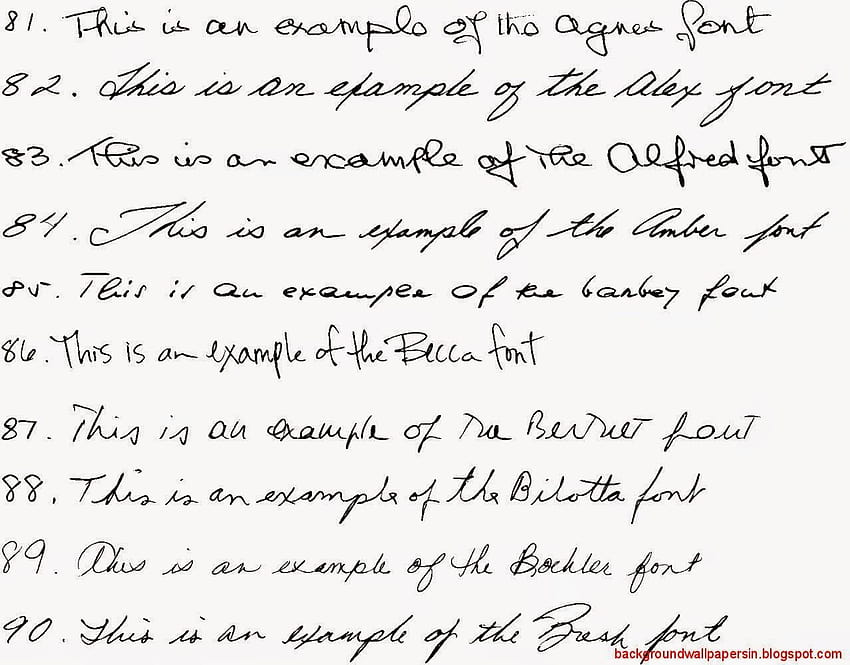 81. This is an example of the Agnes font
82. This is an example of the Alex font
83. This is an example of the Alfred font
84. This is an example of the Amber font
85. This is an example of the barbey font
86. This is an example of the Becca font
87. This is an example of the Berthet font
88. This is an example of the Bilotta font
89. This is an example of the Bochler font
90. This is an example of the font
backgroundwallpapersin.blogspot.com